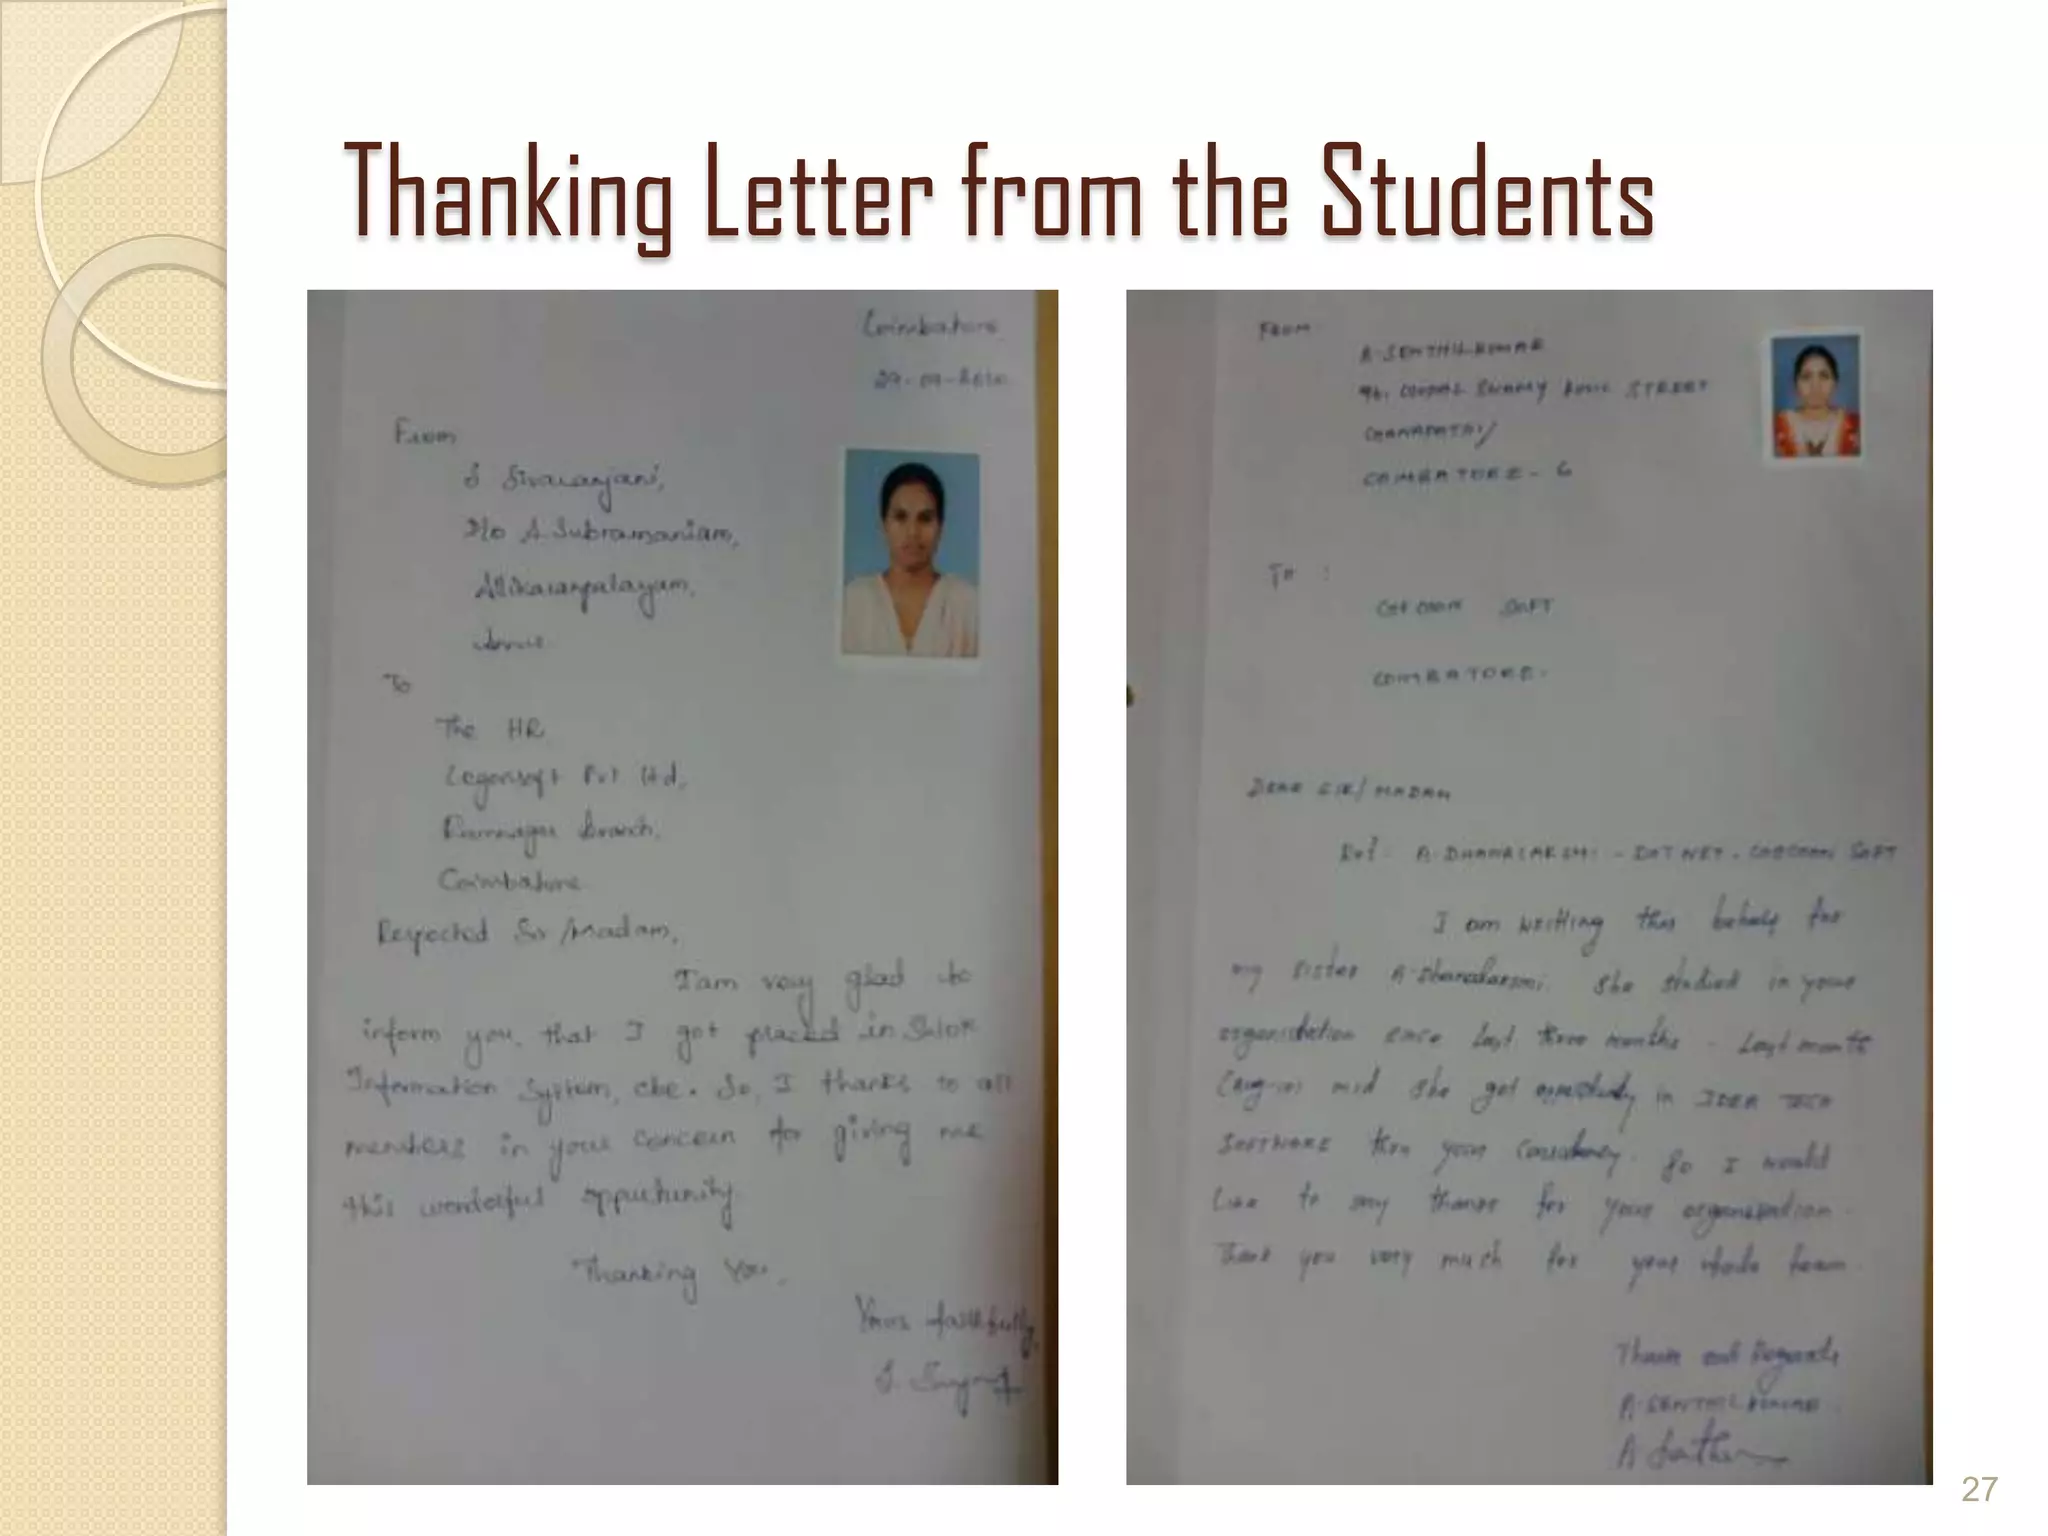 Thanking Letter from the Students
Coimbatore
From
S Sivaranjani,
A. Subramaniam,
To
The HR
Pvt Ltd,
Ramnagar Branch,
Coimbatore
Respected Sir/Madam,
I am very glad to
inform you that I got placed in
Information System, cbe. So, I thanks to all
members in your concern for giving me
this wonderful
Thanking You,
Yours faithfully,
FROM
A. SENTHILKUMAR
STREET
COIMBATORE - 6
TO :
SOFT
COIMBATORE.
DEAR SIR/ MADAM
Ref: A. DHANALAKSHMI - DOT NET - SOFT
I am writing this behalf for
my sister A. Dhanalakshmi. She studied in your
organisation since last three months. Last month
mid she got in IDEA TECH
SOFTWARE your So I would
Like to say thanks for your organisation.
Thank you very much for your whole team.
Thank and Regards
A. SENTHILKUMAR
27